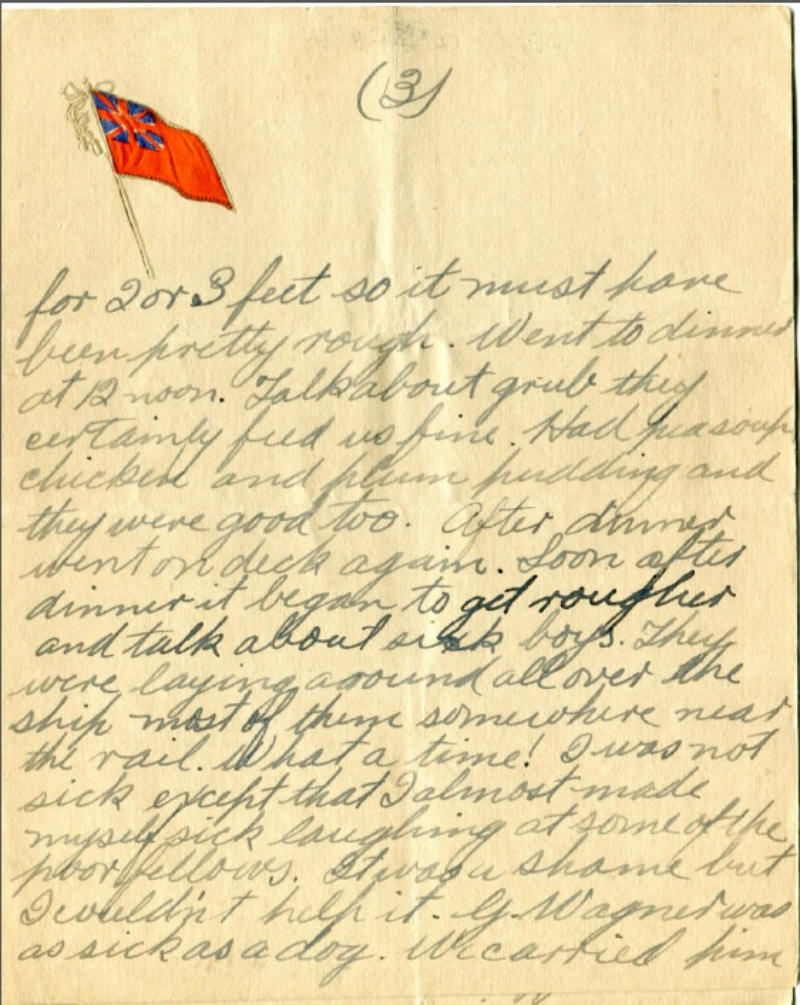 (3)
for 2 or 3 feet so it must have
been pretty rough. Went to dinner
at 12 noon. Talk about grub they
certainly feed us fine. Had pea soup
chicken and plum pudding and
they were good too. After dinner
went on deck again. Soon after
dinner it began to get rougher
and talk about sick boys. They
were laying around all over the
ship most of them somewhere near
the rail. What a time! I was not
sick except that I almost made
myself sick laughing at some of the
poor fellows. It was a shame but
I couldn't help it. G. Wagner was
as sick as a dog. We carried him